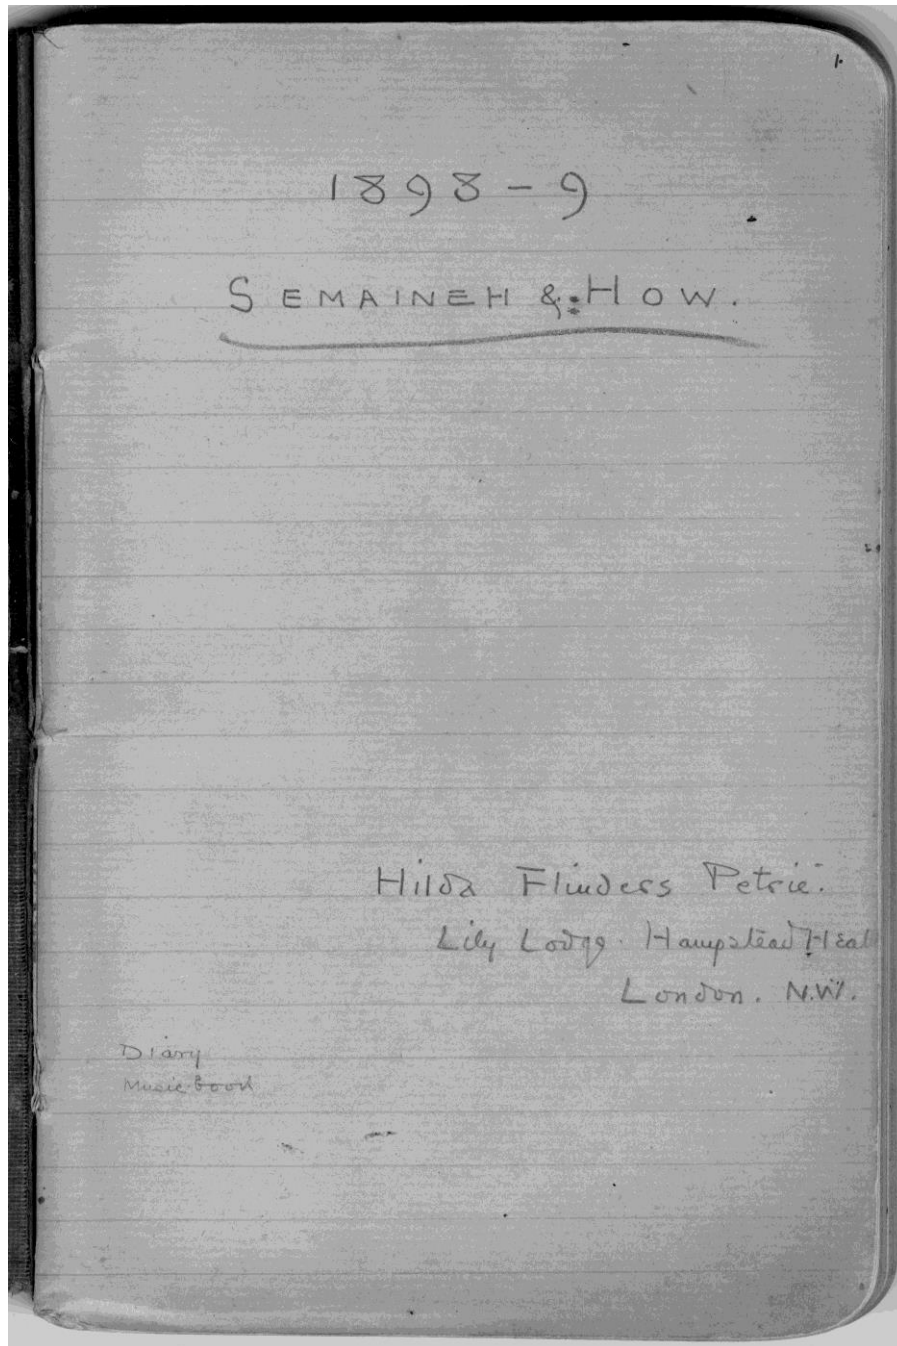 1.
1898 - 9
SEMAINEH & : HOW.
Hilda Flinders Petrie.
Lily Lodge. Hampstead Heat
London. N.W.
Diary
Music book